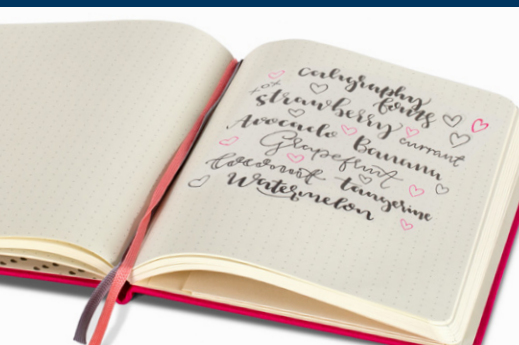 calligraphy
xox fonts
strawberry currant
Avocado Banana
Grapefruit
coconut tangerine
Watermelon